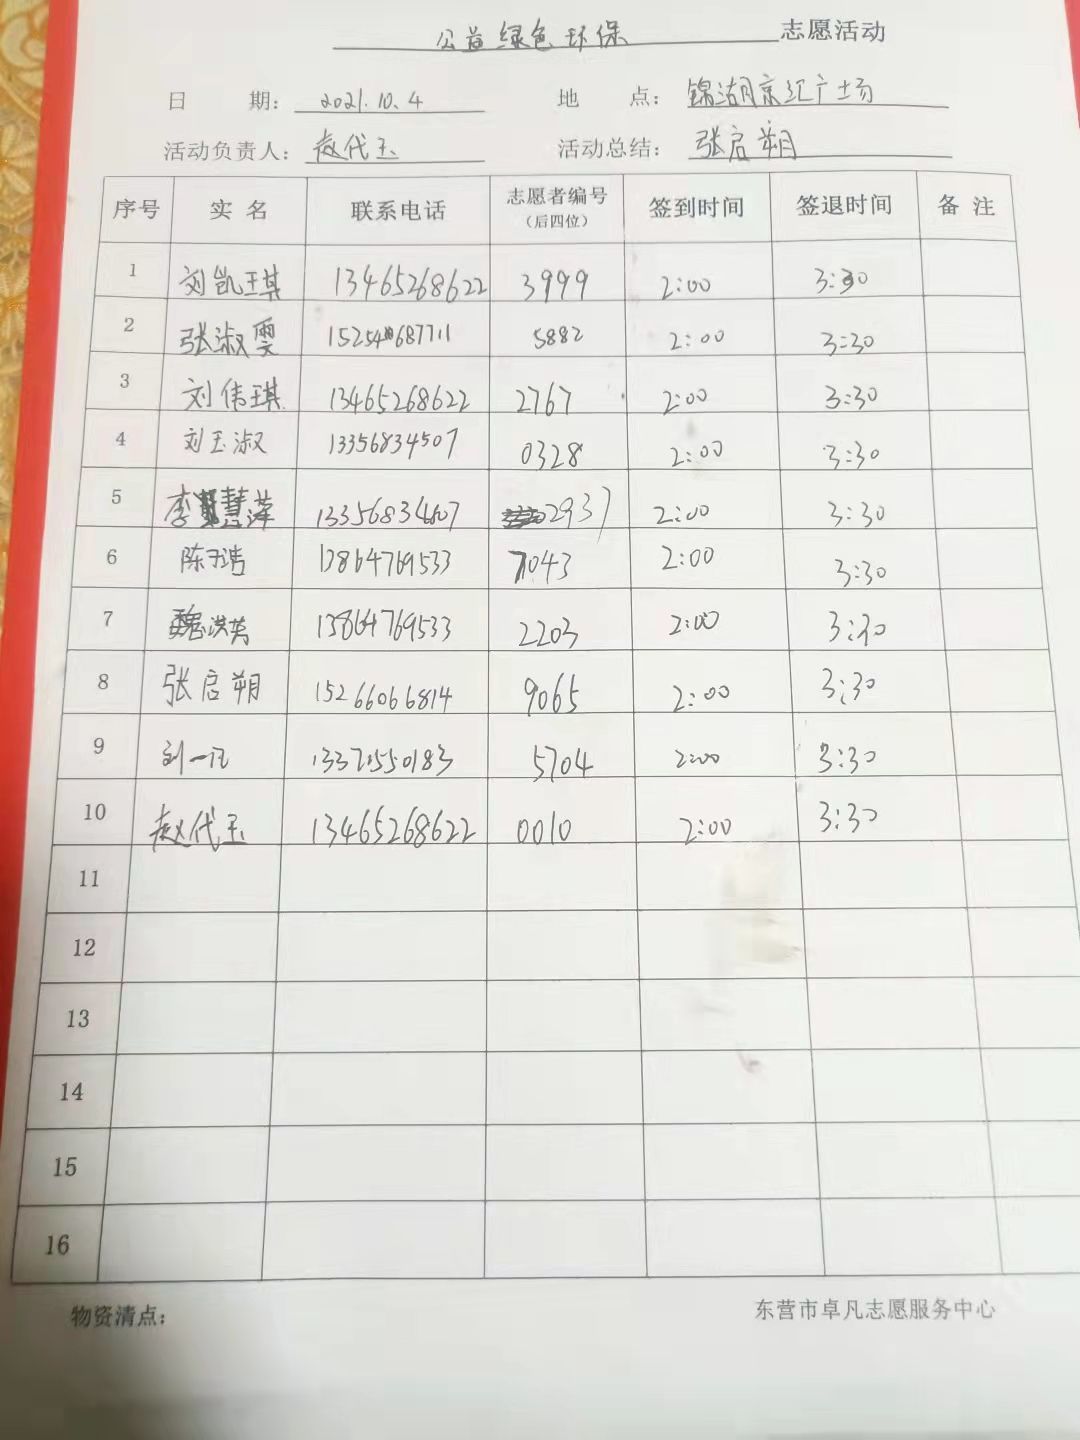 公益绿色环保 志愿活动
日 期: 2021.10.4 地 点: 锦湖京汇广场
活动负责人: 赵代玉 活动总结: 张启朔
序号 实 名 联系电话 志愿者编号 签到时间 签退时间 备 注
(后四位)
1 刘凯琪 13465268622 3999 2:00 3:30
2 张淑雯 15254687711 5882 2:00 3:30
3 刘伟琪 13465268622 2767 2:00 3:30
4 刘玉淑 13356834507 0328 2:00 3:30
5 李慧萍 13356834607 2937 2:00 3:30
6 陈 13864769533 7043 2:00 3:30
7 魏洪英 13864769533 2203 2:00 3:30
8 张启朔 15266066814 9065 2:00 3:30
9 刘一 13371550183 5704 2:00 3:30
10 赵代玉 13465268622 0010 2:00 3:30
11
12
13
14
15
16
物资清点: 东营市卓凡志愿服务中心